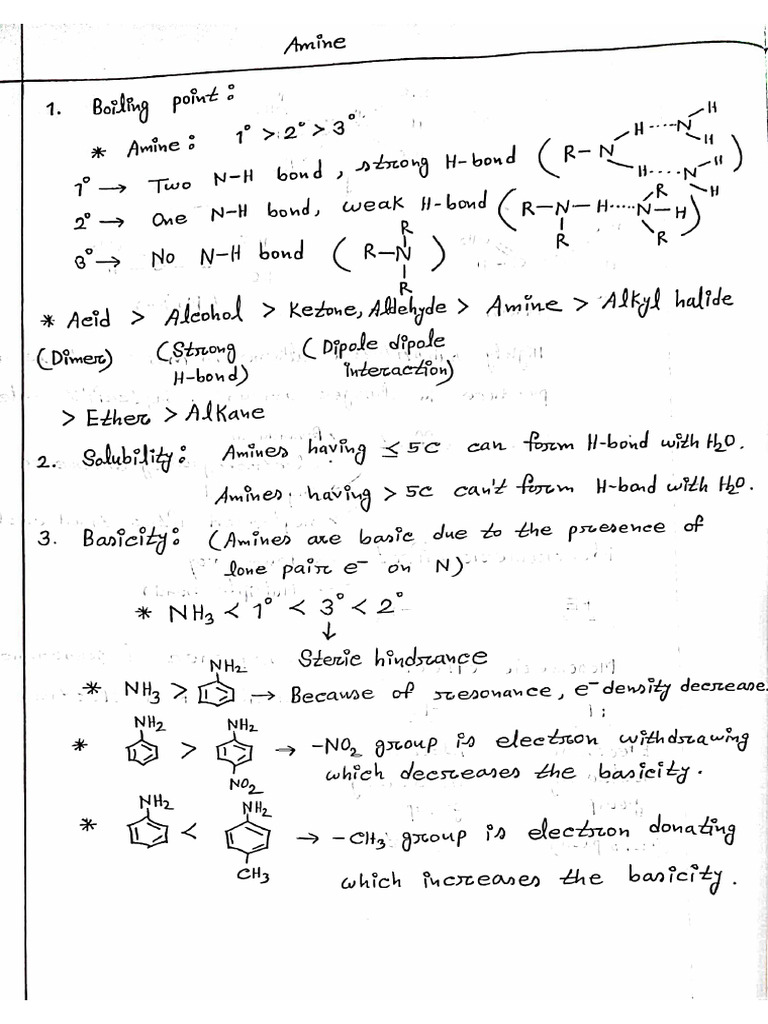 Amine
1. Boiling point:
* Amine: 1° > 2° > 3°
1° → Two N-H bond, strong H-bond (R-N H ---- N H H H ---- N H H)
2° → One N-H bond, weak H-bond (R-N-H ---- N-H R R R)
3° → No N-H bond (R-N R R)
* Acid > Alcohol > Ketone, Aldehyde > Amine > Alkyl halide
(Dimer) (Strong (Dipole dipole
H-bond) interaction)
> Ether > Alkane
2. Solubility: Amines having ≤ 5C can form H-bond with H₂O.
Amines having > 5C can't form H-bond with H₂O.
3. Basicity: (Amines are basic due to the presence of
lone pair e⁻ on N)
* NH₃ < 1° < 3° < 2°
↓
Steric hindrance
NH₂
* NH₃ > → Because of resonance, e⁻ density decrease.
NH₂ NH₂
* > → -NO₂ group is electron withdrawing
NO₂ which decreases the basicity.
NH₂ NH₂
* < → -CH₃ group is electron donating
CH₃ which increases the basicity.